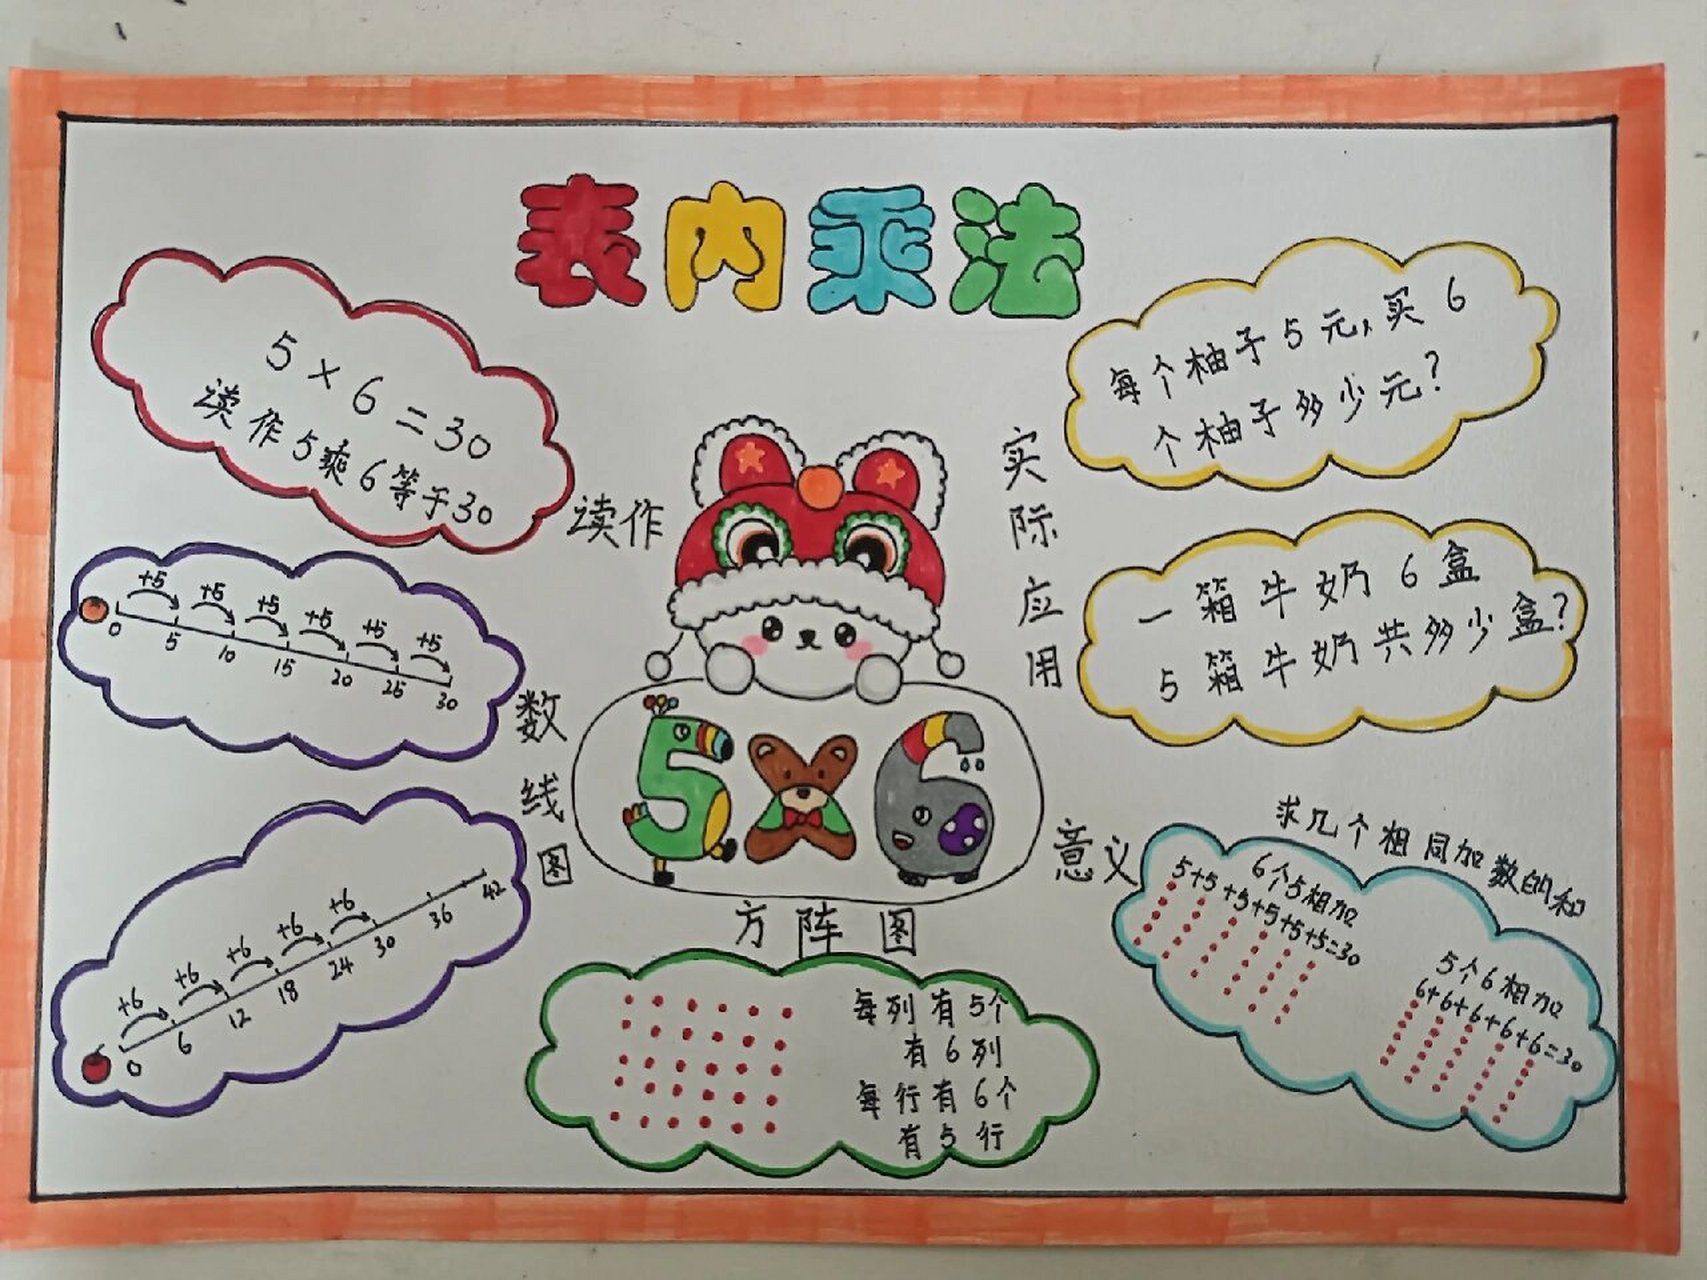 表内乘法
5×6=30
读作5乘6等于30
读作
+5 +5 +5 +5 +5 +5
0 5 10 15 20 25 30
数线图
+6 +6 +6 +6 +6
0 6 12 18 24 30 36 42
5×6
实际应用
每个柚子5元,买6
个柚子多少元?
一箱牛奶6盒
5箱牛奶共多少盒?
意义
求几个相同加数的和
6个5相加
5+5+5+5+5+5=30
5个6相加
6+6+6+6+6=30
方阵图
每列有5个
有6列
每行有6个
有5行